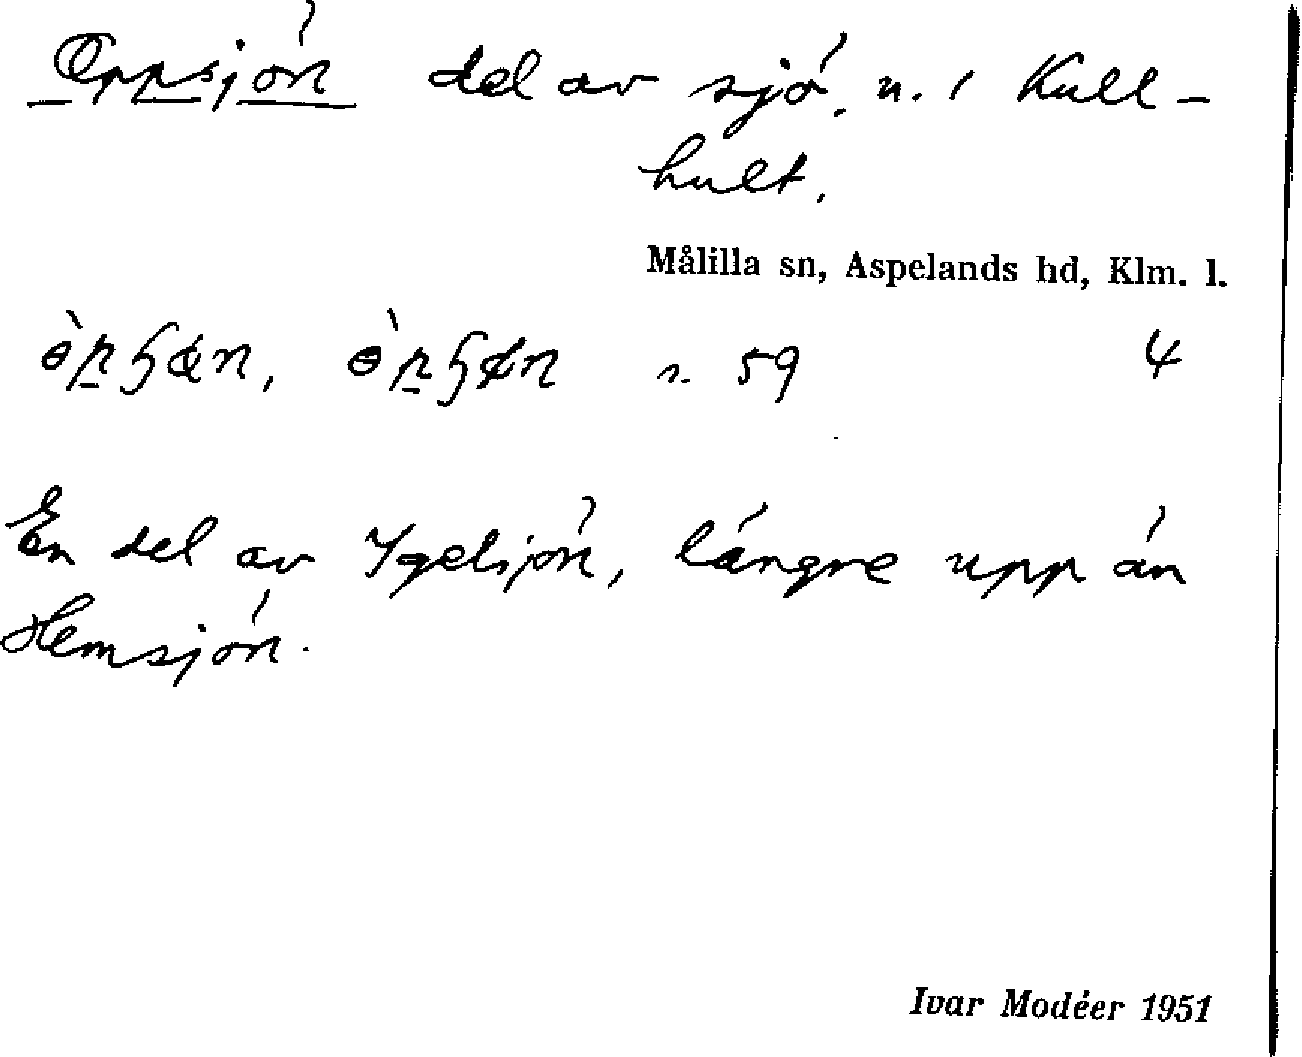 Oppsjön del av sjö, n. i Kull-
hult.
Målilla sn, Aspelands hd, Klm. l.
s. 59 4
En del av Igelsjön, längre upp än
Hemsjön.
Ivar Modéer 1951